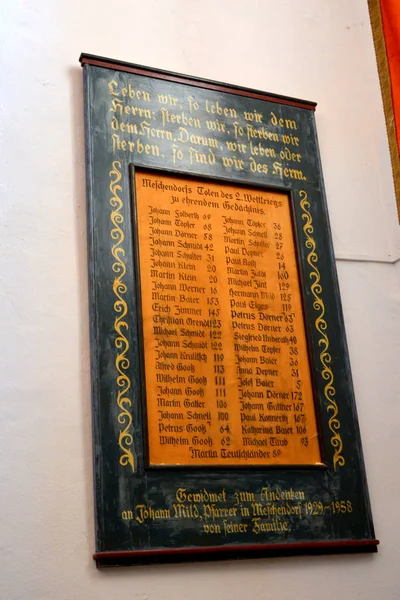 Leben wir, so leben wir dem
Herrn; sterben wir, so sterben wir
dem Herrn. Darum, wir leben oder
sterben, so sind wir des Herrn.
Meschendorfs Toten des 2. Weltkriegs
zu ehrendem Gedächtnis.
Johann Folberth 69
Johann Töpfer 68
Johann Dörner 58
Johann Schmidt 42
Johann Schuster 31
Johann Klein 20
Martin Klein 20
Johann Werner 16
Martin Baier 153
Erich Zimmer 145
Christian Grendt 123
Michael Schmidt 122
Johann Schmidt 122
Johann 119
Alfred Gooß 113
Wilhelm Gooß 111
Johann Gooß 111
Martin 106
Johann Schnell 100
Petrus Gooß 64
Wilhelm Gooß 62
Johann Töpfer 36
Johann Schnell 28
Martin Schuster 27
Paul Depner 26
Paul 14
Martin 160
Michael Zint 129
Hermann Mild 125
Paul 119
Petrus Dörner 63
Petrus Dörner 63
Siegfried 40
Wilhelm Töpfer 38
Johann Baier 36
Anna Depner 31
Josef Baier 5
Johann Dörner 172
Johann Guttner 167
Paul Konnerth 167
Katharina Baier 106
Michael Taub 93
Martin Teutschländer 89
Gewidmet zum Andenken
an Johann Mild, Pfarrer in Meschendorf 1929-1958
von seiner Familie